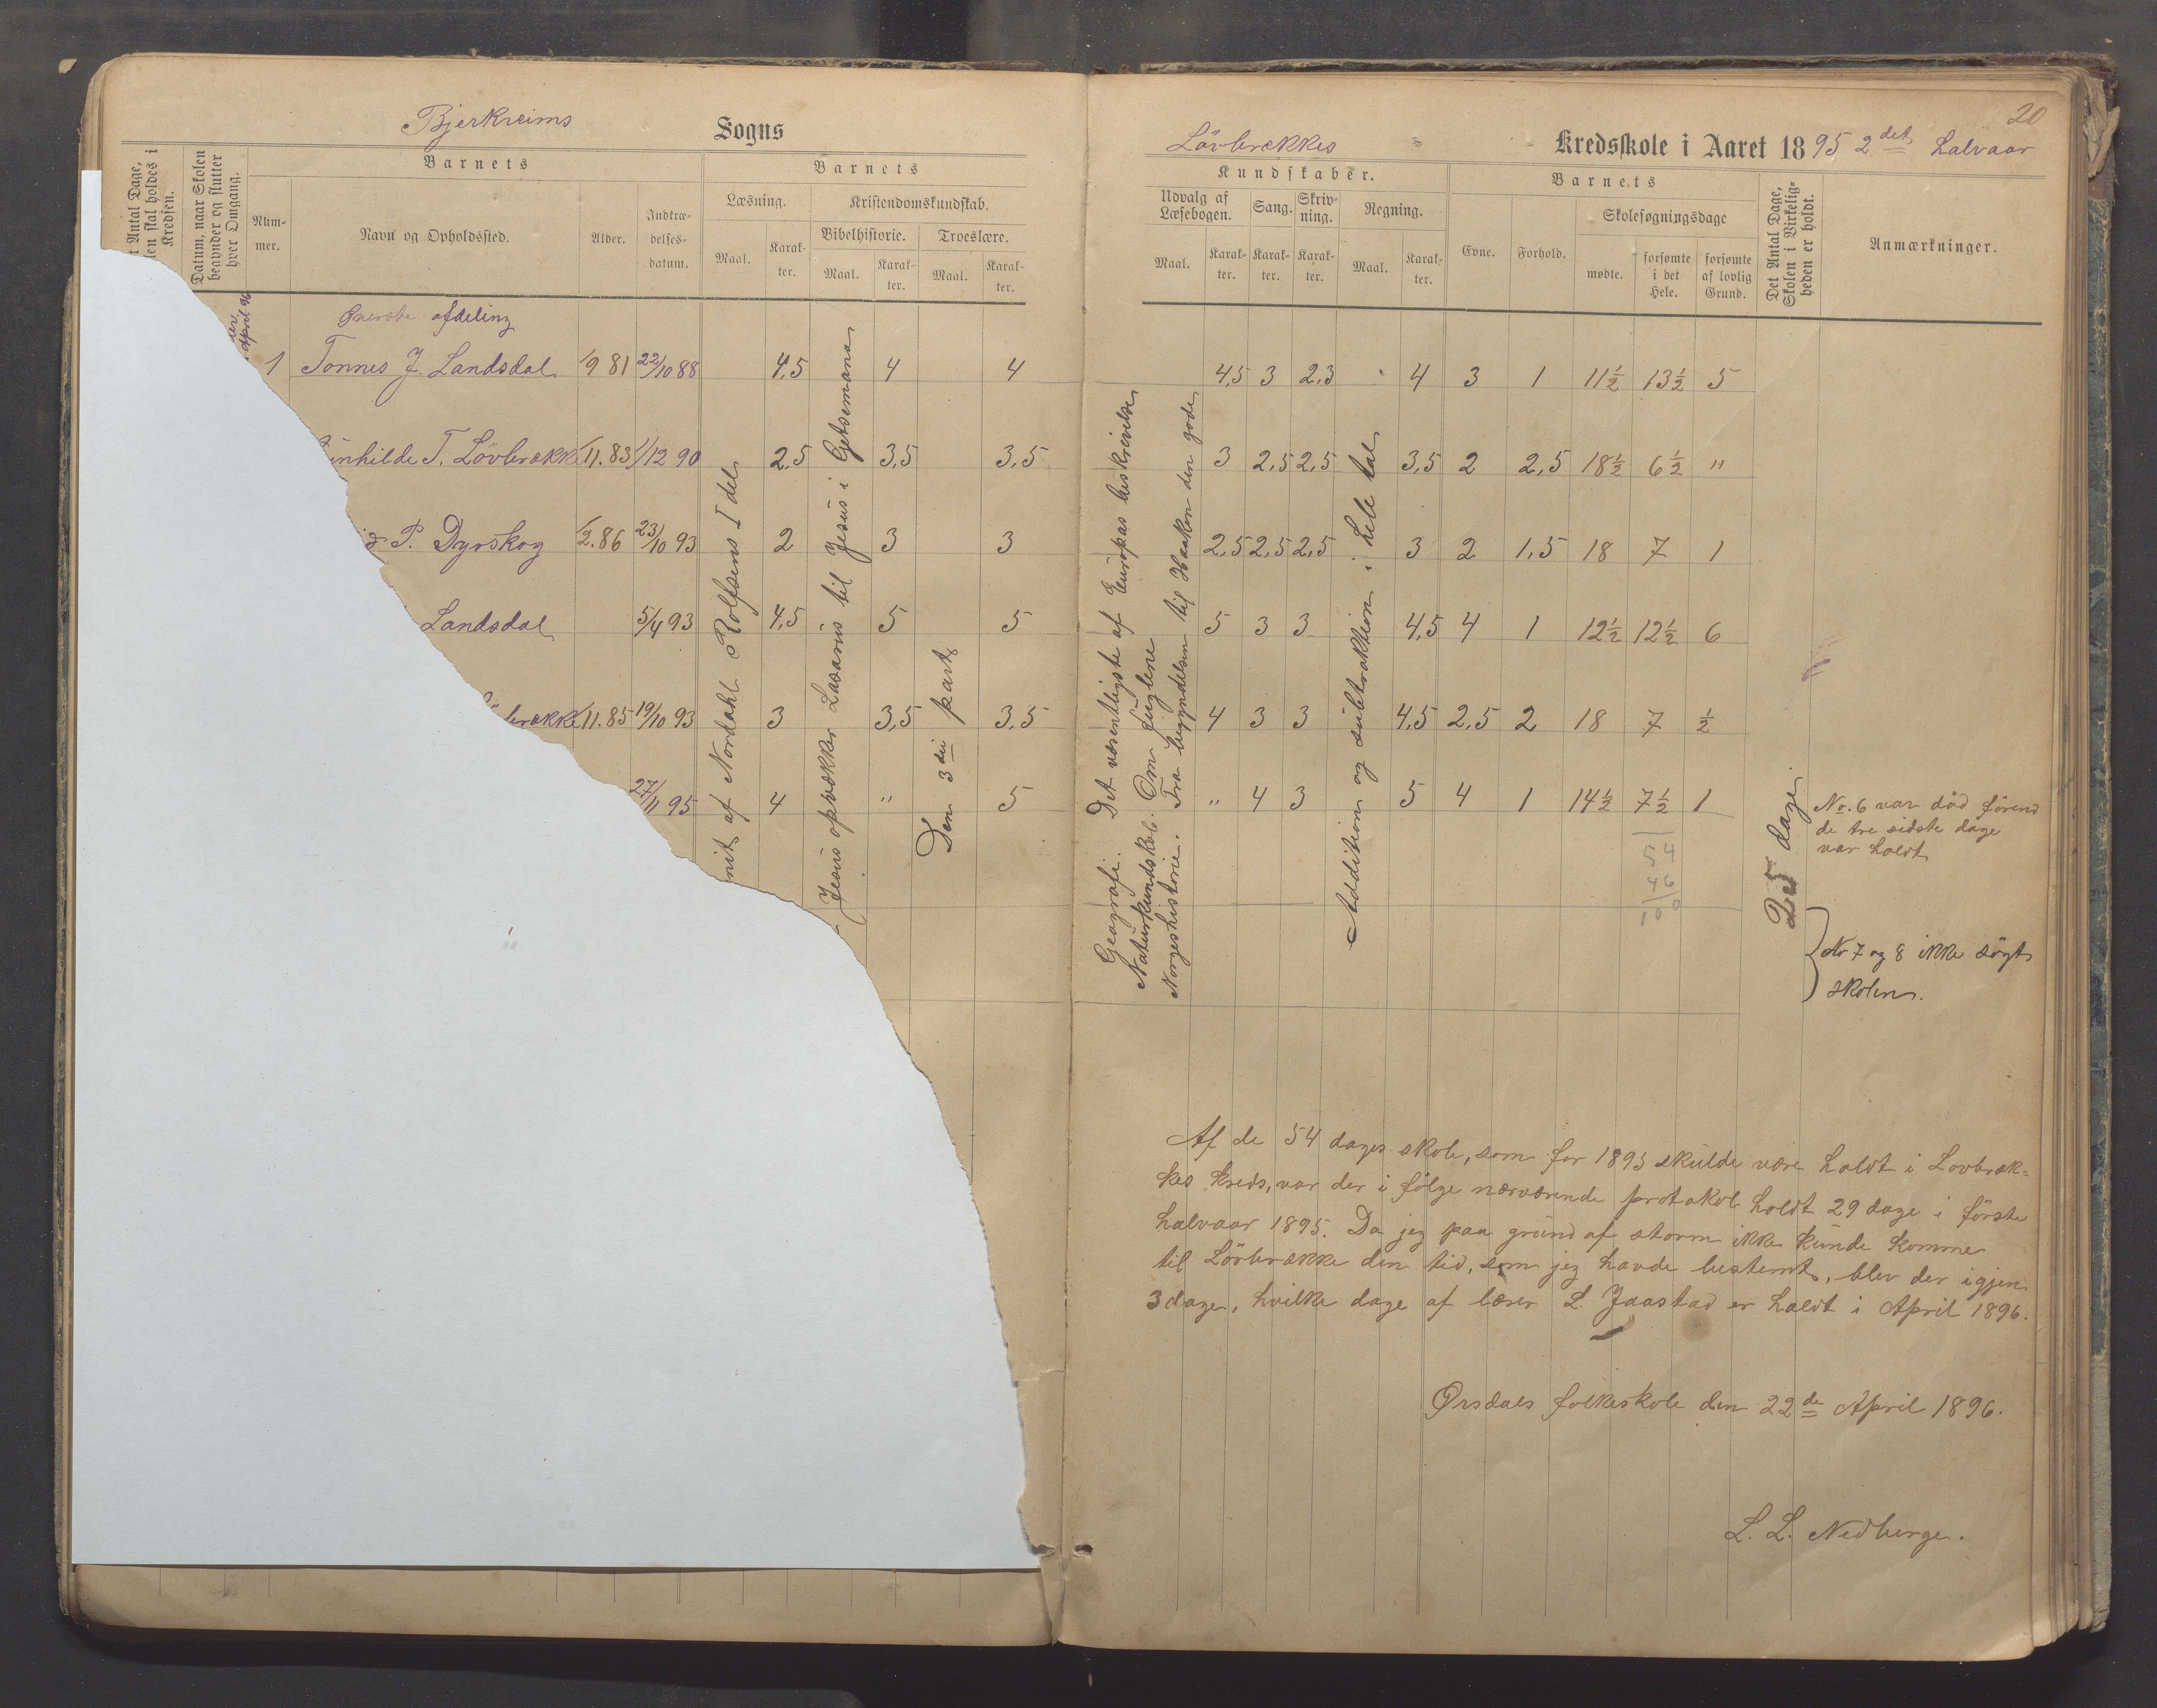 Bjerkreims Sogns
Barnets
Barnets
t Antal Dage,
len skal holdes i
Kredsen.
Datum, naar Skolen
begynder og slutter
hver Omgang.
Num-
mer.
Navn og Opholdssted.
Alder.
Indtræ-
delses-
datum.
Læsning.
Maal.
Karak-
ter.
Kristendomskundskab.
Bibelhistorie.
Maal.
Karak-
ter.
Troeslære.
Maal.
Karak-
ter.
april 96
Øverste afdeling
1 Tonnes J. Landsdal 1/9 81 22/10 88 4,5 4 4
inhilde T. Lövbrække 1/11.83 1/12 90 2,5 3,5 3,5
P. Dyrskog 1/2.86 23/10 93 2 3 3
Landsdal 5/4 93 4,5 5 5
brække 1/11.85 19/10 93 3 3,5 3,5
27/11 95 4 " 5
af Nordahl Rolfsens I del
Jesus opvækker Lasarus til Jesus i Getsemana
Den 3die part
20
Lövbrækkes Kredsskole i Aaret 1895 2det halvaar
Kundskaber.
Barnets
Udvalg af
Læsebogen.
Maal.
Karak-
ter.
Sang.
Karak-
ter.
Skriv-
ning.
Karak-
ter.
Regning.
Maal.
Karak-
ter.
Evne.
Forhold.
Skolesøgningsdage
mødte.
forsømte
i det
Hele.
forsømte
af lovlig
Grund.
Det Antal Dage,
Skolen i Virkelig-
heden er holdt.
Anmærkninger.
4,5 3 2,3 4 3 1 11½ 13½ 5
3 2,5 2,5 3,5 2 2,5 18½ 6½ "
2,5 2,5 2,5 3 2 1,5 18 7 1
5 3 3 4,5 4 1 12½ 12½ 6
4 3 3 4,5 2,5 2 18 7 ½
" 4 3 5 4 1 14½ 7½ 1
54
46
100
Geografi. Det væsentligste af Europas beskrivelse
Naturkundskab. Om fuglene
Norgeshistorie. Fra begyndelsen til Haakon den gode
Addition og subtraktion i hele tal
25 dage.
No. 6 var död förend
de tre sidste dage
var holdt
No 7 og 8 ikke sögt
skolen.
Af de 54 dages skole, som for 1895 skulde være holdt i Lovbræk=
kes kreds, var der i fölge nærværende protokol holdt 29 dage i förste
halvaar 1895. Da jeg paa grund af storm ikke kunde komme
til Lövbrække den tid, som jeg havde bestemt, blev der igjen
3 dage, hvilke dage af lærer L. Jaastad er holdt i April 1896.
Ørsdals folkeskole den 22de April 1896.
L. L. Nedberge.